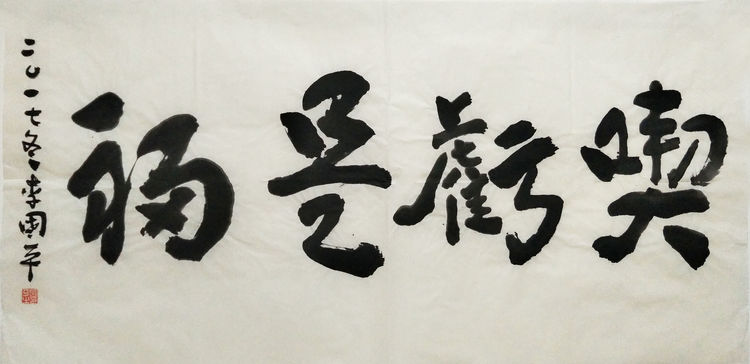 喫虧是福
二〇一七冬李國平